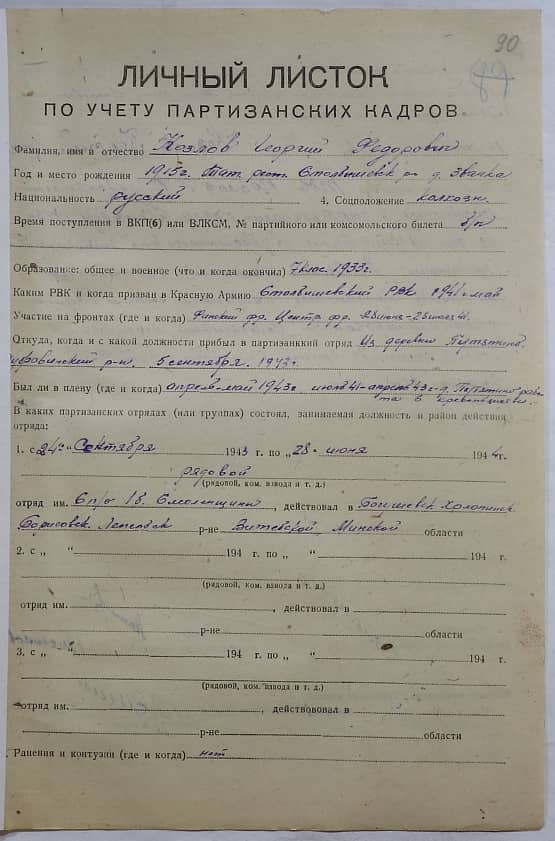 90
ЛИЧНЫЙ ЛИСТОК
ПО УЧЕТУ ПАРТИЗАНСКИХ КАДРОВ.
Фамилия, имя и отчество Козлов Георгий Федорович
Год и место рождения 1915г. Тат. респ. Столбищевск р-н д.
Национальность русский 4. Соцположение колхозн.
Время поступления в ВКП(б) или ВЛКСМ, № партийного или комсомольского билета б/п
Образование: общее и военное (что и когда окончил) 7 клас. 1933г.
Каким РВК и когда призван в Красную Армию Столбищевский РВК 1941 г. май
Участие на фронтах (где и когда) Финский фр. Центр фр.
Откуда, когда и с какой должности прибыл в партизанкий отряд Из деревни
р-н. 5 сентября.
Был ли в плену (где и когда) апрель-май 1943г июль 41-апрель 43г-д.
В каких партизанских отрядах (или группах) состоял, занимаемая должность и район действия
отряда:
1. с „24“ Сентября 1943 г. по „28“ июня 1944 г.
рядовой
(рядовой, ком. взвода и т. д.)
отряд им. 6 п/о 16. Смоленщины, действовал в Богушевск Холопинич.
Борисовск. Лепельск р-не Витебской, Минской области
2. с „ “ 194 г. по „ “ 194 г.
(рядовой, ком. взвода и т. д.)
отряд им. , действовал в
р-не области
3. с „ “ 194 г. по „ “ 194 г.
(рядовой, ком. взвода и т. д.)
отряд им. , действововал в
р-не области
Ранения и контузии (где и когда) нет